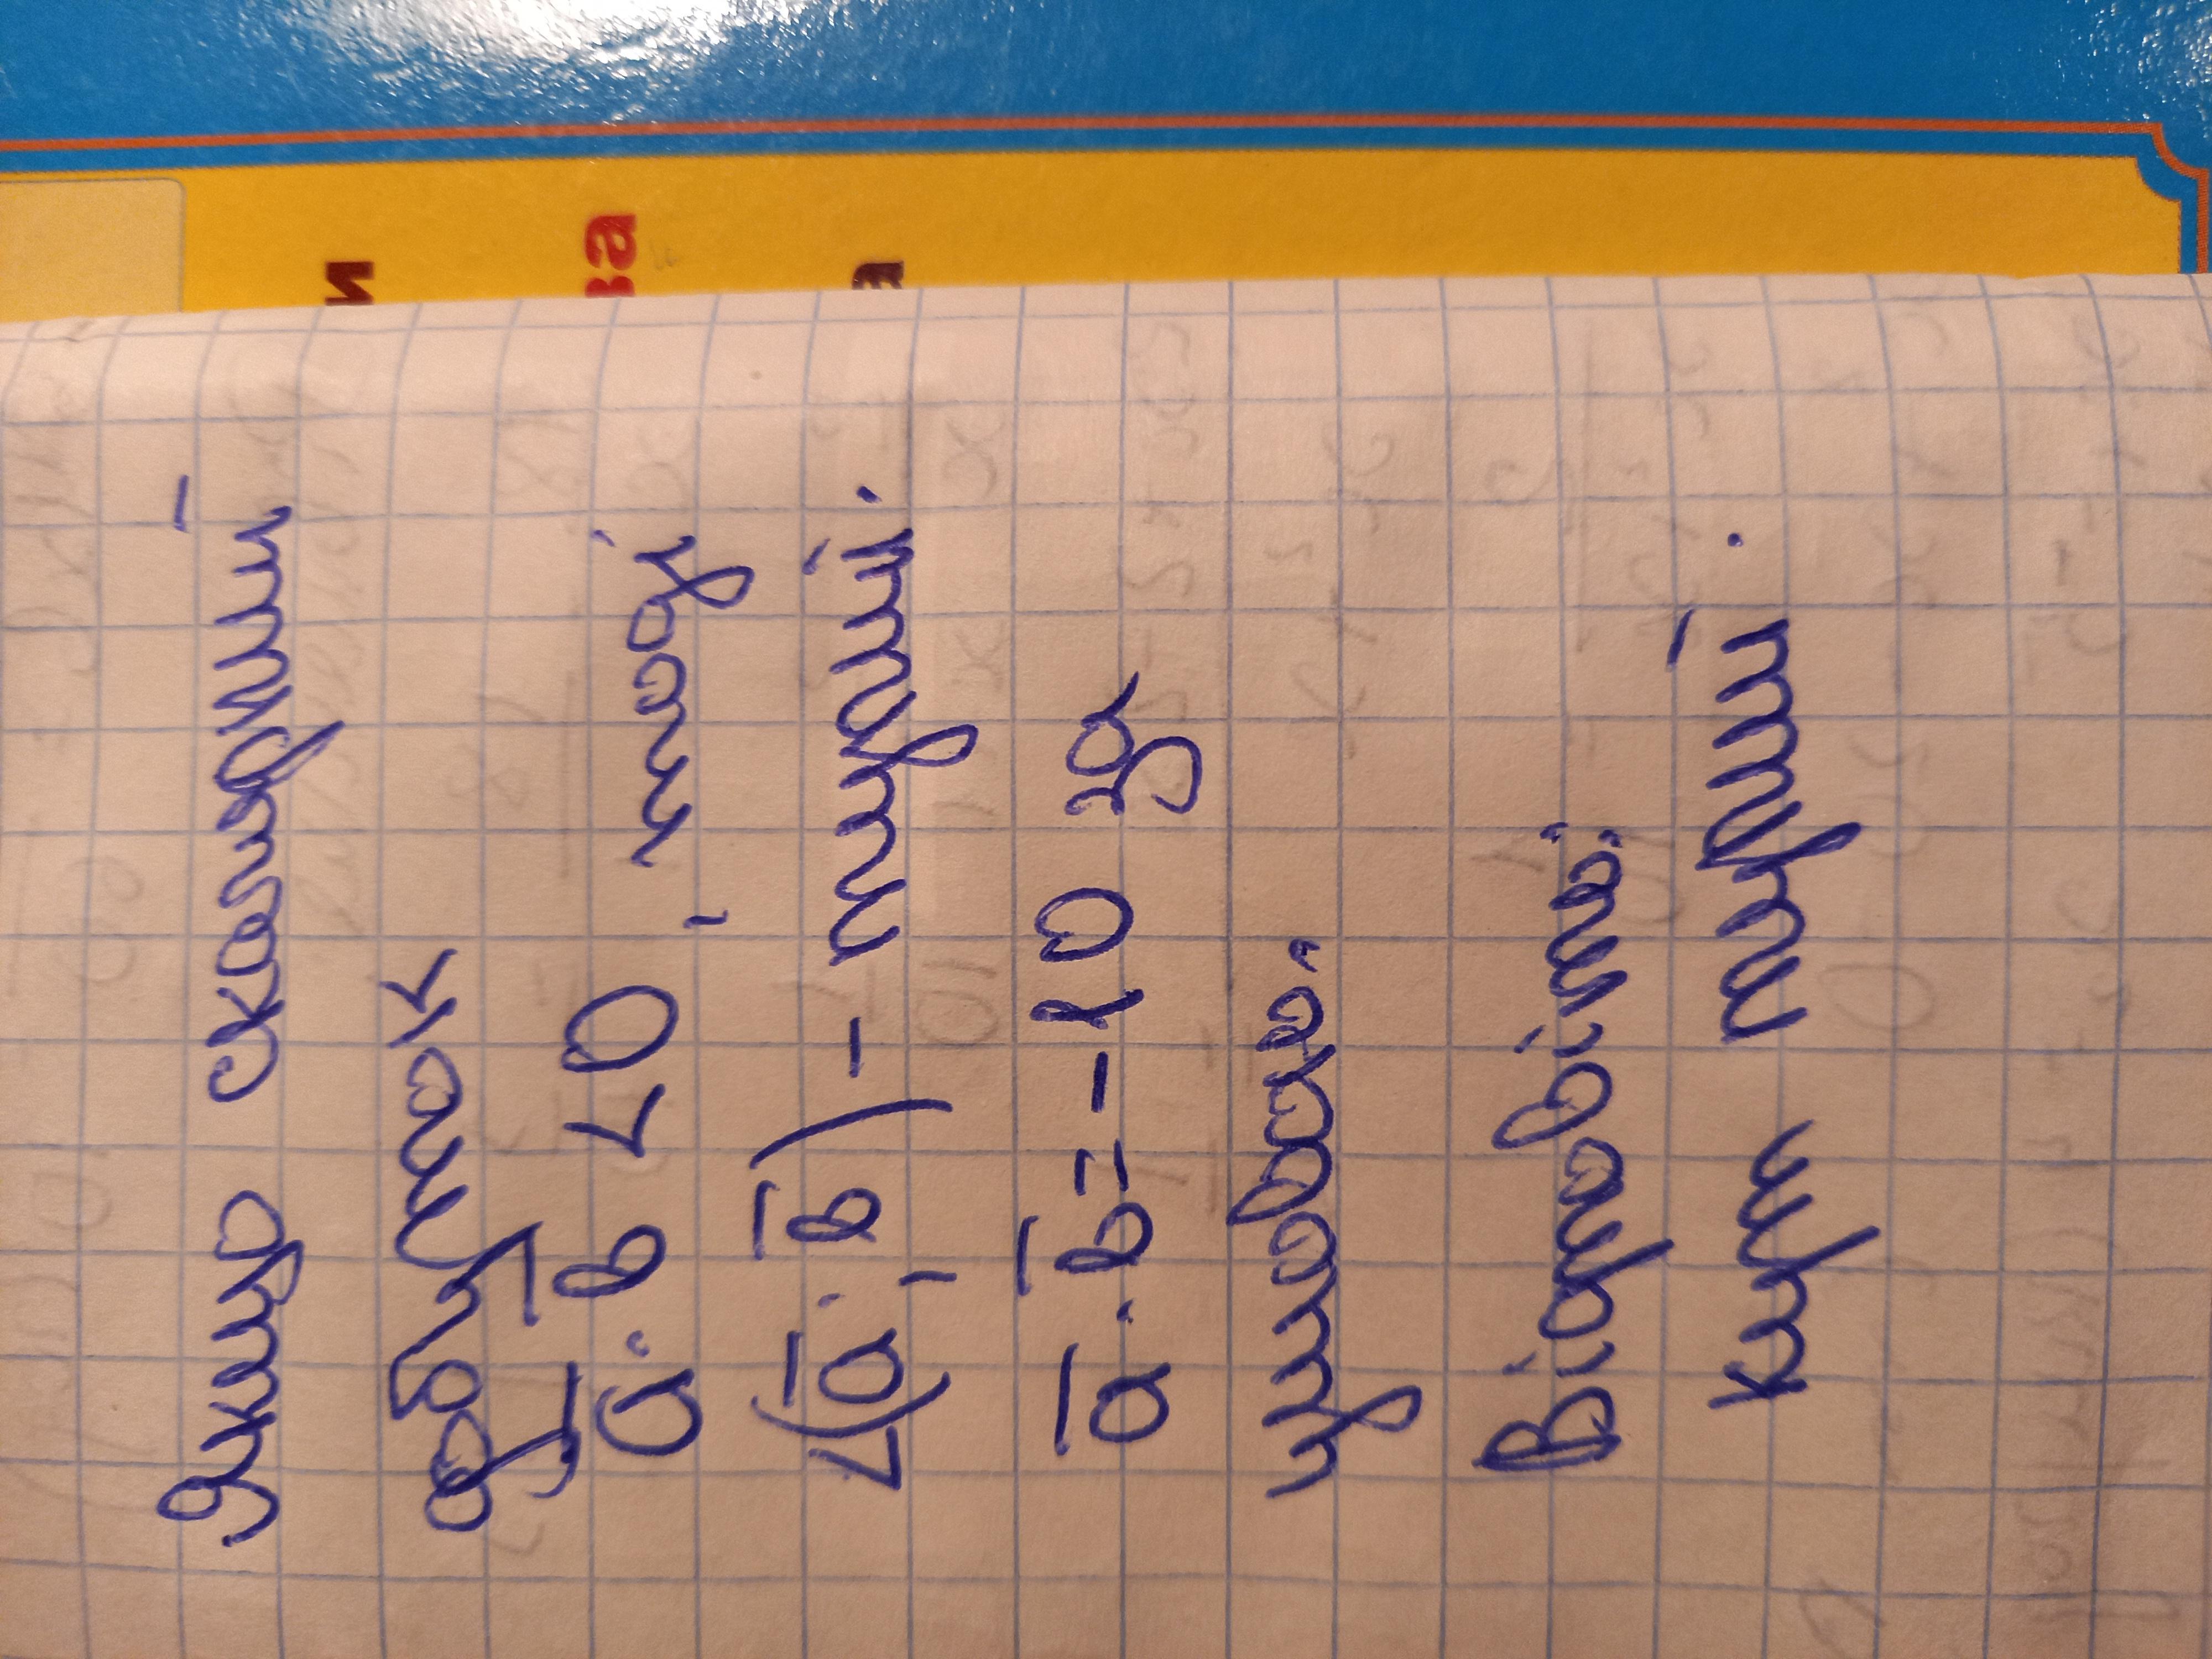 Якщо скалярний
добуток
a̅·b̅ < 0, тоді
∠(a̅; b̅) - тупий.
a̅·b̅ = -10 за
умовою.
Відповідь:
кут тупий.
и
ва
а